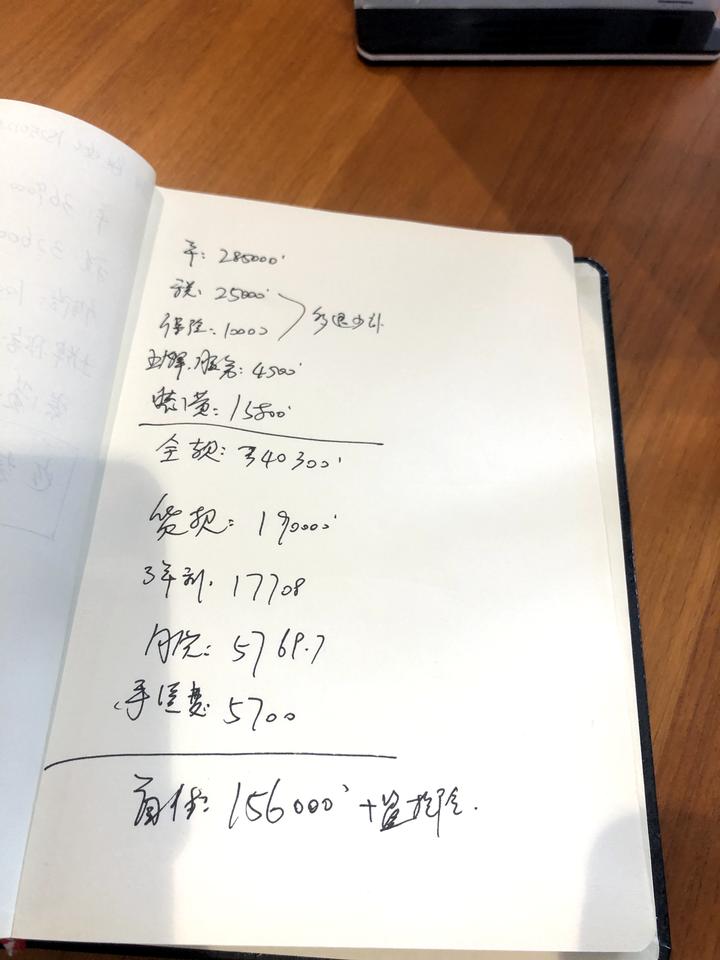 车: 285000
税: 25000
保险: 10000
多退少补
上牌.服务: 4500
装潢: 15800
全额: 340300
贷款: 190000
3年利. 17708
月供: 5769.7
手续费 5700
首付: 156000 + 盗抢险.
369000